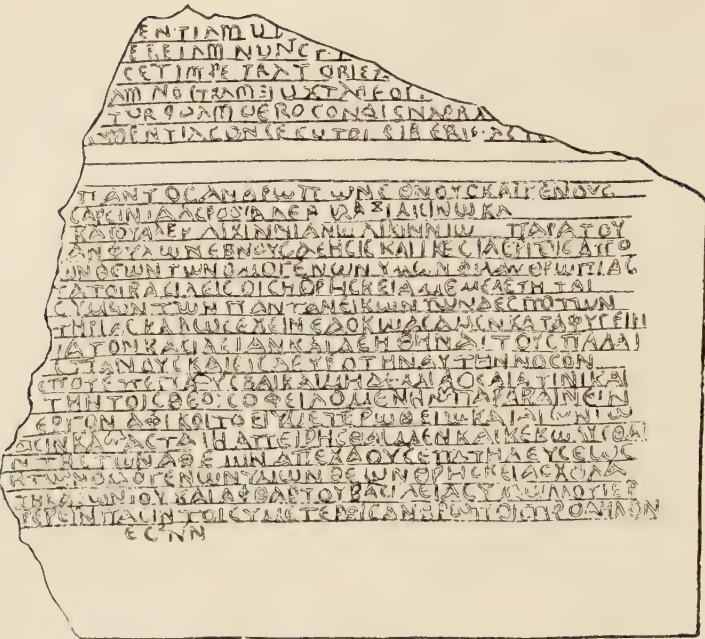 ENTIAM UI
EFEIAM NUNC P.I
CET IMPETRATORIEZ
AM NOSTRAM IUXTA DEOS
TUR QUAM UERO CONSISNARRA
AMENTIA CONSECUTOS LIBERIS AC
ΠΑΝΤΟϹ ΑΝΘΡΩΠΩΝ ΕΘΝΟΥϹ ΚΑΙ ΓΕΝΟΥϹ
ϹΑΡϹΙΝ ΓΑΛΕΡ ΟΥΑΛΕΡ ΜΑΞΙΜΙΝΩ ΚΑ
ΚΑΙ ΟΥΑΛΕΡ ΛΙΚΙΝΝΙΑΝΩ ΛΙΚΙΝΝΙΩ ΠΑΡΑ ΤΟΥ
ΑΝΦΥΛΩΝ ΕΘΝΟΥϹ ΔΕΗϹΙϹ ΚΑΙ ΙΚΕϹΙΑ ΕΡΓΟΙϹ ΑΠΟ
ΩΝ ΘΕΩΝ ΤΩΝ ΟΜΟΓΕΝΩΝ ΥΜΩΝ ΦΙΛΑΝΘΡΩΠΙΑϹ
ΤΑΤΟΙ ΒΑϹΙΛΕΙϹ ΟΙϹ Η ΘΡΗϹΚΕΙΑ ΜΕΜΕΛΕΤΗΤΑΙ
Ϲ ΥΜΩΝ ΤΩΝ ΠΑΝΤΑ ΝΕΙΚΩΝΤΩΝ ΔΕϹΠΟΤΩΝ
ΤΗΡΙΑϹ ΚΑΛΩϹ ΕΧΕΙΝ ΕΔΟΚΙΜΑϹΑΜΕΝ ΚΑΤΑΦΥΓΕΙΝ
ΙΑΤΟΝ ΒΑϹΙΛΕΙΑΝ ΚΑΙ ΔΕΗΘΗΝΑΙ ΤΟΥϹ ΠΑΛΑΙ
ϹΤΙΑΝΟΥϹ ΚΑΙ ΕΙϹ ΔΕΥΡΟ ΤΗΝ ΑΥΤΗΝ ΝΟϹΟΝ
ΠΟΤΕ ΠΕΠΑΥϹΘΑΙ ΚΑΙ ΜΗΔΕΜΙΑ ϹΚΑΙΑ ΤΙΝΙ ΚΑΙ
ΤΗΝ ΤΟΙϹ ΘΕΟΙϹ ΟΦΕΙΛΟΜΕΝΗΝ ΠΑΡΑΒΑΙΝΕΙΝ
ΕΡΓΟΝ ΑΦΙΚΟΙΤΟ ΕΙ ΥΜΕΤΕΡΩ ΘΕΙΩ ΚΑΙ ΑΙΩΝΙΩ
ΠϹΙΝ ΚΑΤΑϹΤΑΙΗ ΑΠΕΙΡΗϹΘΑΙ ΜΕΝ ΚΑΙ ΚΕΚΩΛΥϹΘΑΙ
Ν ΤΗϹ ΤΩΝ ΑΘΕΩΝ ΑΠΕΧΘΟΥϹ ΕΠΙΤΗΔΕΥϹΕΩϹ
Η ΤΩΝ ΟΜΟΓΕΝΩΝ ΥΜΩΝ ΘΕΩΝ ΘΡΗϹΚΕΙΑ ϹΧΟΛΑ
ΤΗϹ ΑΙΩΝΙΟΥ ΚΑΙ ΑΦΘΑΡΤΟΥ ΒΑϹΙΛΕΙΑϹ ΥΜΩΝ
ΦΕΡΕΙΝ ΠΑϹΙΝ ΤΟΙϹ ΥΜΕΤΕΡΟΙϹ ΑΝΘΡΩΠΟΙϹ ΠΡΟΔΗΛΟΝ
ΕϹΤΙΝ